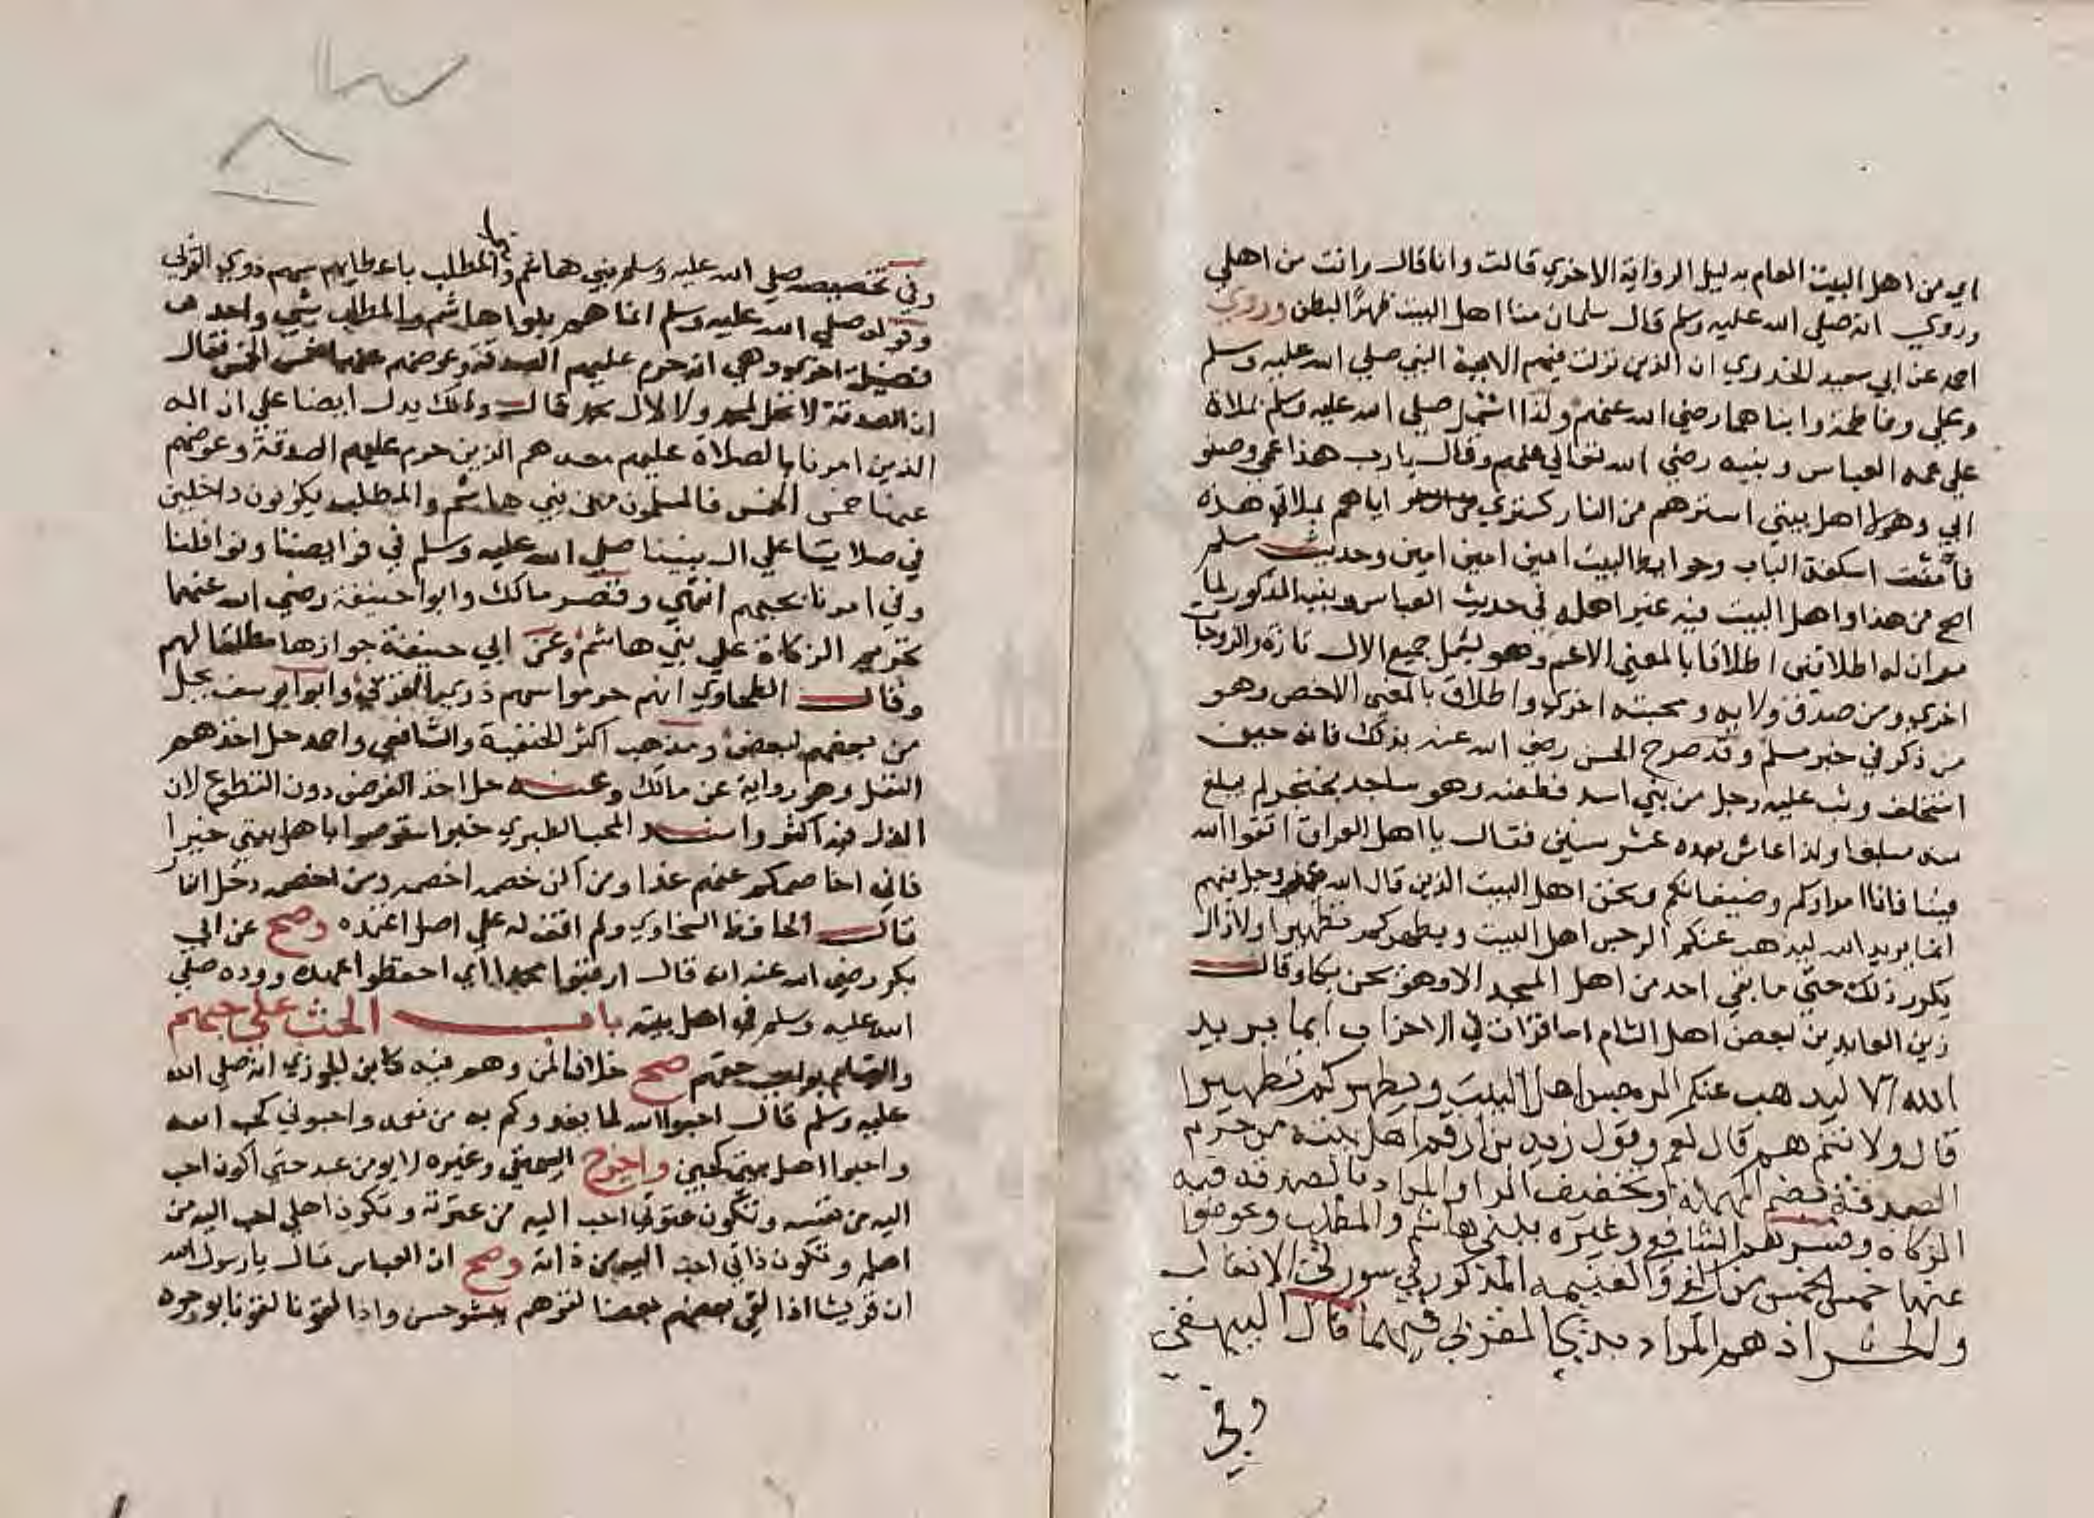 اي من اهل البيت العام بدليل الرواية الاخري قالت وانا قال وانت من اهلي
وروي انه صلي الله عليه وسلم قال سلمان منا اهل البيت وروي
احمد عن ابي سعيد الخدري ان الذين نزلت فيهم الاية النبي صلي الله عليه وسلم
وعلي وفاطمة وابناهما رضي الله عنهم ولذا اشتمل صلي الله عليه وسلم بملاة
علي عمه العباس وبنيه رضي الله تعالي عنهم وقال يارب هذا عمي وصنو
ابي وهولا اهل بيتي استرهم من النار كستري اياهم بملاتي هذه
فامنت اسكفة الباب وحوايط البيت امين امين امين وحديث مسلم
اصح من هذا واهل البيت فيه غير اهله في حديث العباس وبنيه المذكور لما
مر ان له اطلاقين اطلاقا بالمعني الاعم وهو يشمل جميع الال تارة والزوجات
اخري ومن صدق في ولايه ومحبته اخري واطلاق بالمعني الاخص وهو
من ذكر في خبر مسلم وقد صرح الحسن رضي الله عنه بذلك فانه حين
استخلف وثب عليه رجل من بني اسد فطعنه وهو ساجد بخنجر لم يبلغ
منه مبلغا ولذا عاش بعده عشر سنين فقال يا اهل العراق اتقوا الله
فينا فانا امراوكم وضيفانكم ونحن اهل البيت الذين قال الله عز وجل فيهم
انما يريد الله ليذهب عنكم الرجس اهل البيت ويطهركم تطهيرا ولازال
يكرر ذلك حتي ما بقي احد من اهل المسجد الا وهو يحن بكا وقال
زين العابدين لبعض اهل الشام اما قرات في الاحزاب انما يريد
الله ليذهب عنكم الرجس اهل البيت ويطهركم تطهيرا
قال ولانتم هم قال نعم وقول زيد بن ارقم اهل بيته من حرم
الصدقة بضم المهملة وتخفيف الرا والمراد بالصدقة فيه
الزكاه وفسرهم الشافعي وغيره ببني هاشم والمطلب وعوضوا
عنها خمس الخمس من الفي والغنيمه المذكور في سورتي الانفال
والحشر اذ هم المراد بذي القربي فيهما قال البيهقي
وفي
وفي تخصيصه صلي الله عليه وسلم بني هاشم والمطلب باعطايهم سهم ذوي القربي
وقوله صلي الله عليه وسلم انما هاشم والمطلب شي واحد
فضيلة اخري وهي انه حرم عليهم الصدقة وعوضهم عنها خمس الخمس فقال
ان الصدقة لا تحل لمحمد ولا لال محمد قال وذلك يدل ايضا علي ان اله
الذين امرنا بالصلاة عليهم معه هم الذين حرم عليهم الصدقة وعوضهم
عنها خمس الخمس فالمسلمون من بني هاشم والمطلب يكونون داخلين
في صلاتنا علي ال نبينا صلي الله عليه وسلم في فرايضنا ونوافلنا
وفي امرنا بحبهم انتهي وقصر مالك وابو حنيفة رضي الله عنهما
تحريم الزكاة علي بني هاشم وعن ابي حنيفة جوازها مطلقا لهم
وقال الطحاوي انهم حرموا سهم ذوي القربي وابو يوسف يحل
من بعضهم لبعض ومذهب اكثر الحنفية والشافعي واحمد حل اخذهم
النفل وهو رواية عن مالك وعنه حل اخذ الفرض دون التطوع لان
الذل فيه اكثر واسند المحب الطبري خبر استوصوا باهل بيتي خيرا
فاني اخاصمكم عنهم غدا ومن اكن خصمه اخصمه ومن اخصمه دخل النار
قال الحافظ السخاوي ولم اقف له علي اصل اعتمده وصح عن ابي
بكر رضي الله عنه انه قال ارقبوا محمدا اي احفظوا عهده ووده صلي
الله عليه وسلم في اهل بيته باب الحث علي حبهم
والقيام بواجب حقهم صح خلافا لمن وهم فيه كابن الجوزي انه صلي الله
عليه وسلم قال احبوا الله لما يغذوكم به من نعمه واحبوني لحب الله
واحبوا اهل بيتي لحبي واخرج البيهقي وغيره لا يومن عبد حتي اكون احب
اليه من نفسه وتكون عترتي احب اليه من عترته ويكون اهلي احب اليه من
اهله وتكون ذاتي احب اليه من ذاته وصح ان العباس قال يارسول الله
ان قريشا اذا لقي بعضهم بعضا لقوهم ببشر حسن واذا لقونا لقونا بوجوه